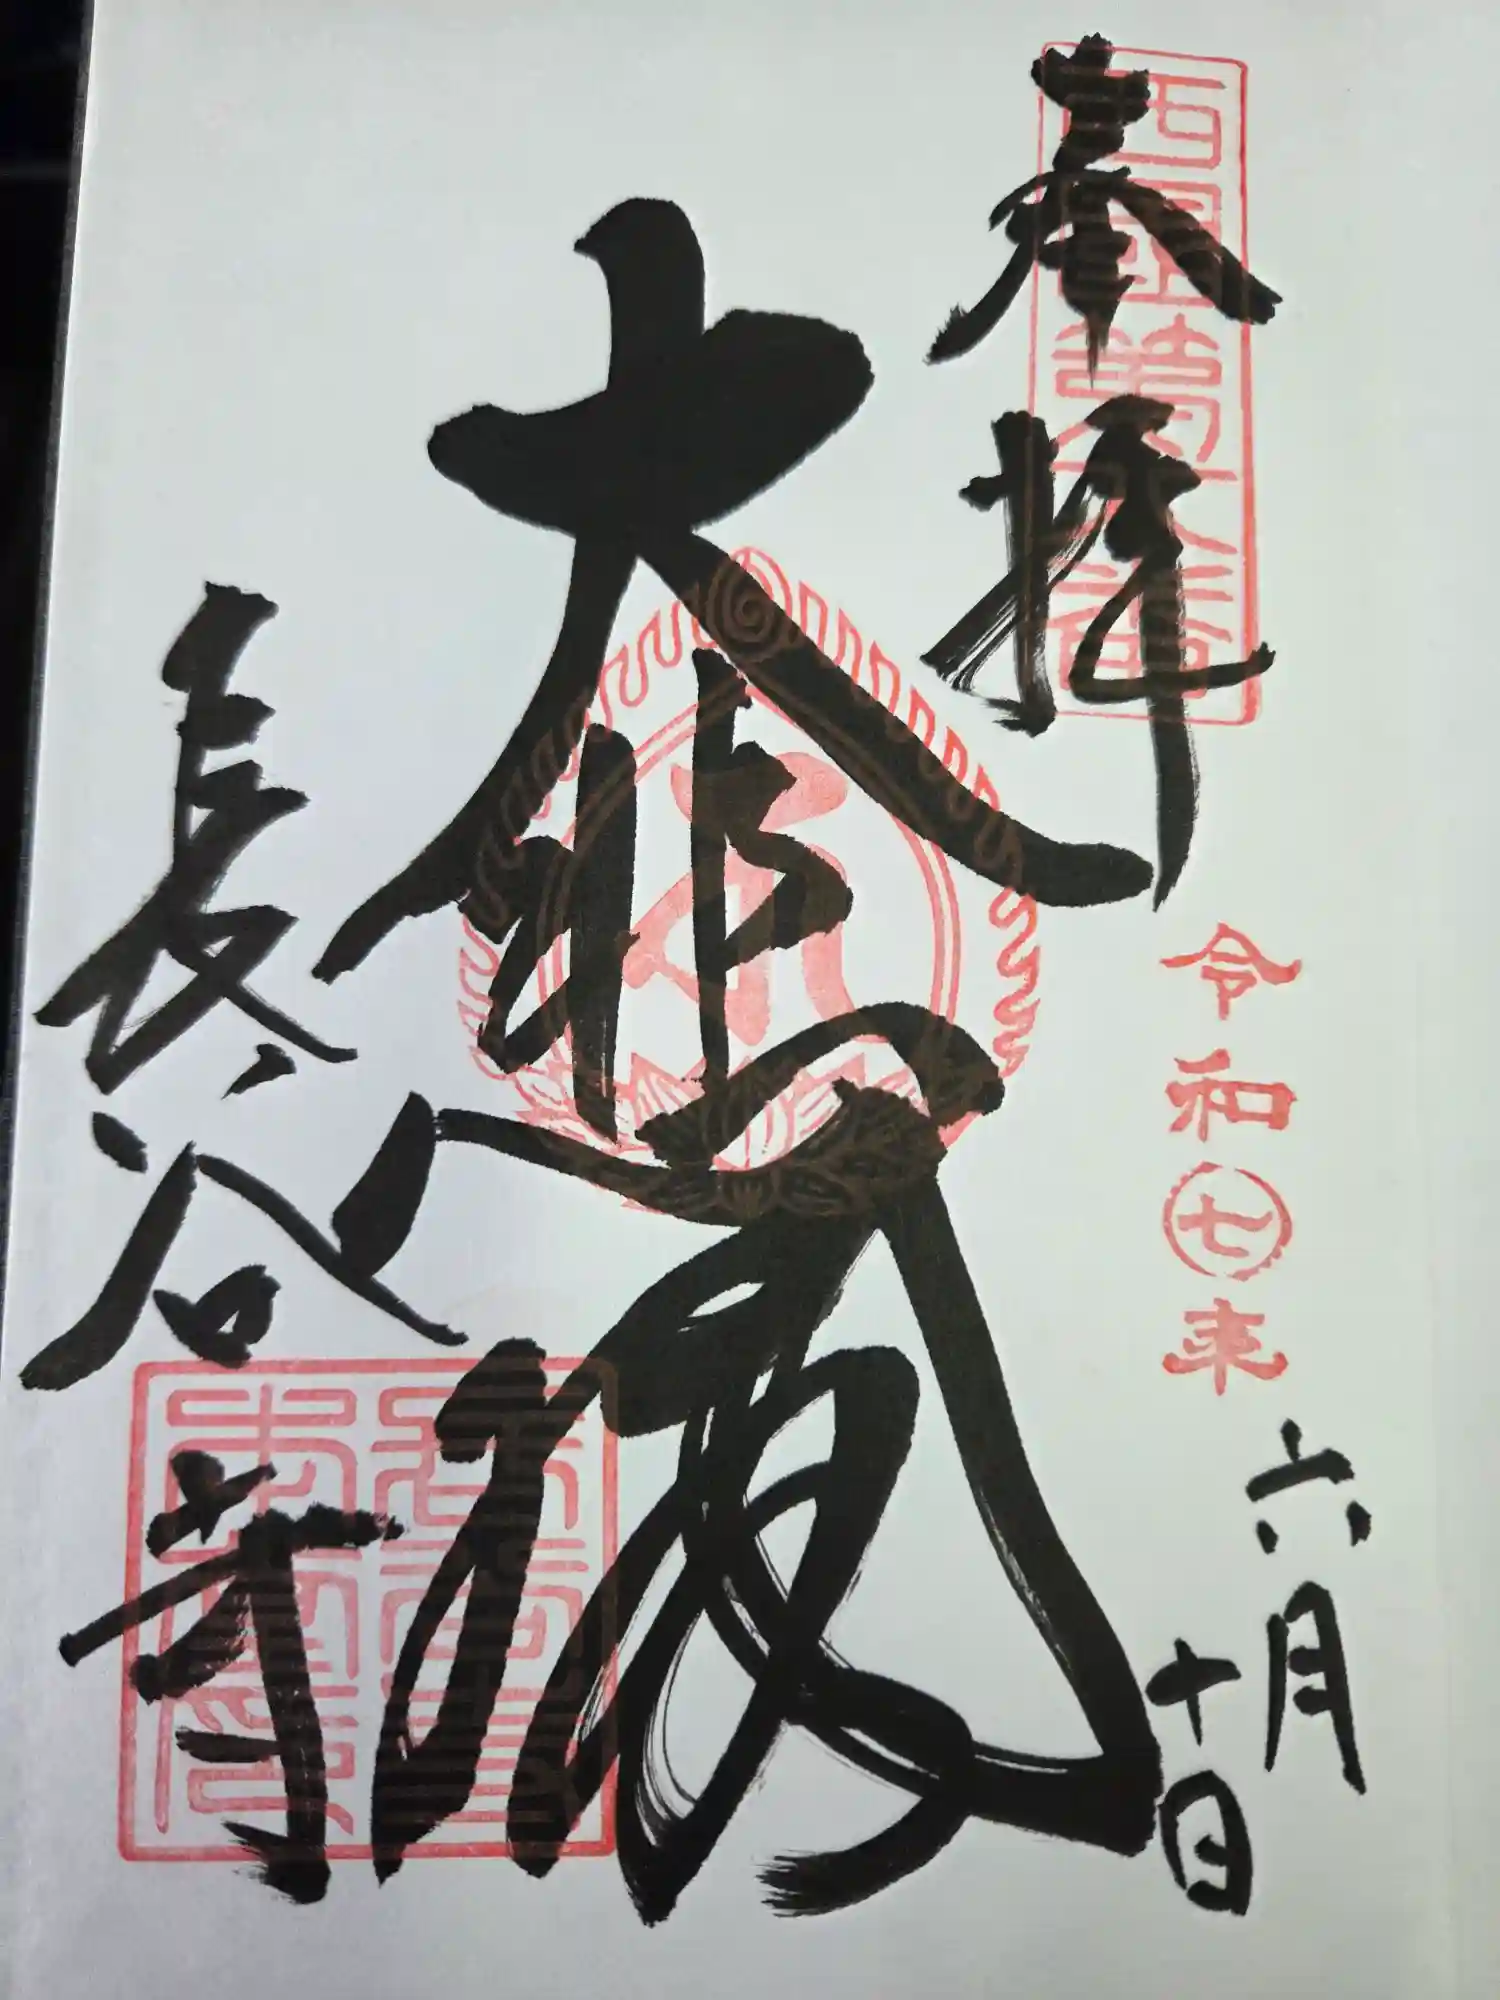 奉拝
西國第八番
令和七年
六月
十日
大悲閣
長谷寺